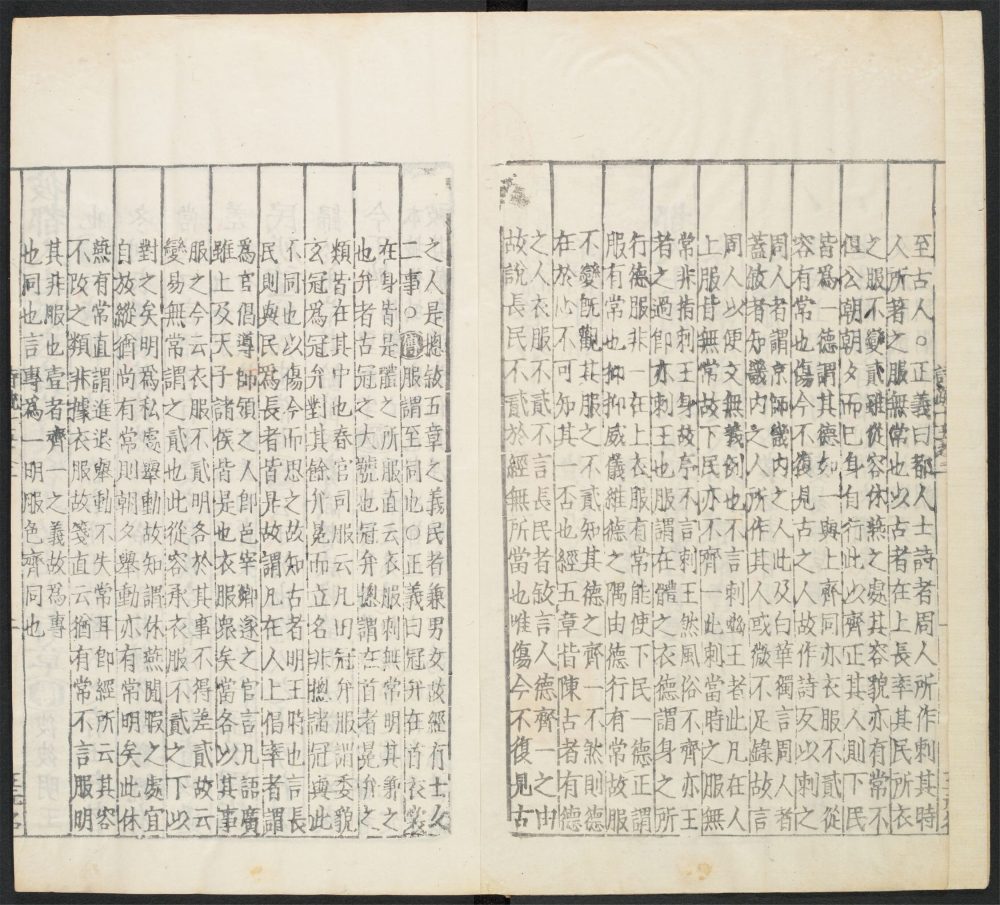 至古人○正義曰都人士詩者周人所作刺其時
人所著之服無常也以古者在上長率其民所衣
之服不變貳雖從容休燕之處其容貌亦有常不
但公朝朝夕而已身自行此以齊正其人則下民
皆為一德謂其德如一與上齊同亦衣服不貳從
容有常也傷今不復見古之人故作詩反以刺之
周人者謂京師畿內之人此及白華獨言周人者
蓋敘者知畿內之人所作其人或微不足錄故言
周人以便文無義例也不言刺幽王者此凡在人
上服皆無常故下民亦不齊一此刺當時之服無
常非指刺王身故序不言刺王然風俗不齊亦王
者之過即亦刺王也服謂在體之衣德謂身之所
行德服非一在上衣服有常能使下民一德正謂
服有常也抑抑威儀維德之隅由德行有常故服
不變既觀其服之不貳知其德之齊一不然則德
在於心不可知其一否也經五章皆陳古者有德
之人衣服不貳不言長民者敘言人德齊一之由
故說長民不貳於經無所當也唯傷今不復見古
之人是總敘五章之義民者兼男女故經有士女
二事○服謂至同也○正義曰冠弁在首衣裳
在身皆是體之所服直云衣服刺無常明其兼之
也弁者古冠之大號也冠弁總謂在首者冕弁之
類皆在其中也春官司服云凡甸冠弁服謂委貌
玄冠為冠弁對其餘弁冕而立名非摠諸冠與此
不同也以傷今而思之故知古者明王時也言長
民則與民為長者皆是故謂凡在人上倡率者謂
為官倡導師領之人即邑宰鄉遂之官言凡語廣
雖上及天子諸侯皆是也衣服眾矣當各以其事
服之今云衣服不貳明各於其事不得差貳故云
變易無常謂之貳也此從容承衣服不貳之下以
對之矣明為私處舉動故知謂休燕閒暇之處宜
自放縱猶尚有常則朝夕舉動亦有常明矣此休
燕有常直謂進退舉動不失常耳即經所云其容
不改之類非據衣服故箋直云猶有常不言服明
其非服也壹者齊一之義故為專
也同也言專為一明服色齊同也